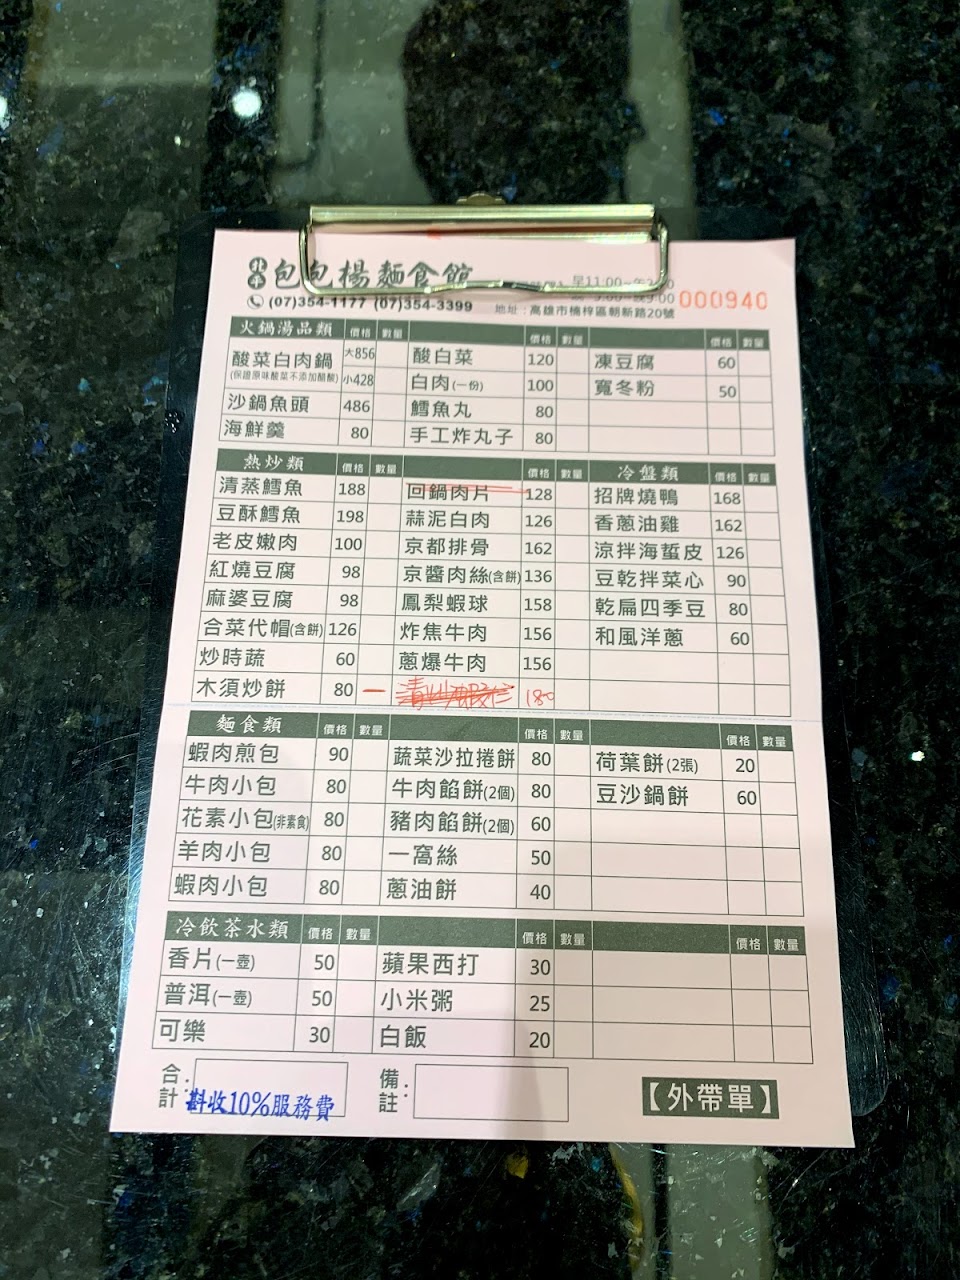 北平 包包楊麵食館
早11:00
(07)354-1177 (07)354-3399 地址：高雄市楠梓區朝新路20號 000940
火鍋湯品類 價格 數量 價格 數量 價格 數量
酸菜白肉鍋 大856 酸白菜 120 凍豆腐 60
(保證原味酸菜不添加醋酸) 小428 白肉(一份) 100 寬冬粉 50
沙鍋魚頭 486 鱈魚丸 80
海鮮羹 80 手工炸丸子 80
熱炒類 價格 數量 價格 數量 冷盤類 價格 數量
清蒸鱈魚 188 回鍋肉片 128 招牌燒鴨 168
豆酥鱈魚 198 蒜泥白肉 126 香蔥油雞 162
老皮嫩肉 100 京都排骨 162 涼拌海蜇皮 126
紅燒豆腐 98 京醬肉絲(含餅) 136 豆乾拌菜心 90
麻婆豆腐 98 鳳梨蝦球 158 乾扁四季豆 80
合菜代帽(含餅) 126 炸焦牛肉 156 和風洋蔥 60
炒時蔬 60 蔥爆牛肉 156
木須炒餅 80 清炒蝦仁 180
麵食類 價格 數量 價格 數量 價格 數量
蝦肉煎包 90 蔬菜沙拉捲餅 80 荷葉餅(2張) 20
牛肉小包 80 牛肉餡餅(2個) 80 豆沙鍋餅 60
花素小包(非素食) 80 豬肉餡餅(2個) 60
羊肉小包 80 一窩絲 50
蝦肉小包 80 蔥油餅 40
冷飲茶水類 價格 數量 價格 數量 價格 數量
香片(一壺) 50 蘋果西打 30
普洱(一壺) 50 小米粥 25
可樂 30 白飯 20
合計： 備註： 【外帶單】
斟收10%服務費